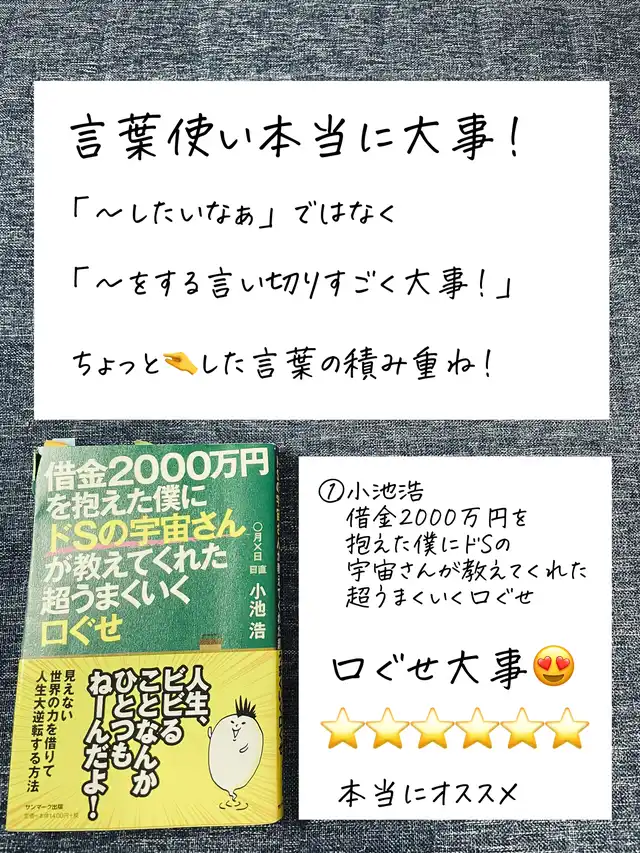 言葉使い本当に大事！
「〜したいなぁ」ではなく
「〜をする言い切りすごく大事！」
ちょっと🤏した言葉の積み重ね！
借金2000万円
を抱えた僕に
ドSの宇宙さん
が教えてくれた
超うまくいく
口ぐせ
〇月×日
日直
小池浩
人生、
ビビる
ことなんか
ひとつも
ねーんだよ！
見えない
世界の力を借りて
人生大逆転する方法
サンマーク出版
定価=本体1400円+税
①小池浩
借金2000万円を
抱えた僕にドSの
宇宙さんが教えてくれた
超うまくいく口ぐせ
口ぐせ大事😍
⭐⭐⭐⭐⭐⭐
本当にオススメ